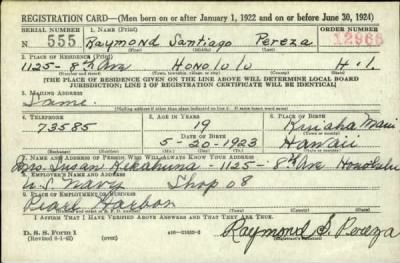 REGISTRATION CARD—(Men born on or after January 1, 1922 and on or before June 30, 1924)
SERIAL NUMBER 1. NAME (Print) ORDER NUMBER
N 555 Raymond Santiago Pereza 12966
2. PLACE OF RESIDENCE (Print)
1125 - 8th Ave Honolulu H.I.
(Number and street) (Town, township, village, or city) (County) (State)
[THE PLACE OF RESIDENCE GIVEN ON THE LINE ABOVE WILL DETERMINE LOCAL BOARD
JURISDICTION; LINE 2 OF REGISTRATION CERTIFICATE WILL BE IDENTICAL]
3. MAILING ADDRESS
Same.
[Mailing address if other than place indicated on line 2. If same insert word same]
4. TELEPHONE 5. AGE IN YEARS 6. PLACE OF BIRTH
73585 19 Maui
DATE OF BIRTH
5-20-1923 Hawaii
(Mo.) (Day) (Yr.) (State or country)
7. NAME AND ADDRESS OF PERSON WHO WILL ALWAYS KNOW YOUR ADDRESS
Mrs. Susan Kekahuna - 1125 - 8th Ave Honolulu
8. EMPLOYER'S NAME AND ADDRESS
U.S. Navy Shop 08
9. PLACE OF EMPLOYMENT OR BUSINESS
Pearl Harbor
I AFFIRM THAT I HAVE VERIFIED ABOVE ANSWERS AND THAT THEY ARE TRUE.
D. S. S. Form 1
Raymond S. Pereza